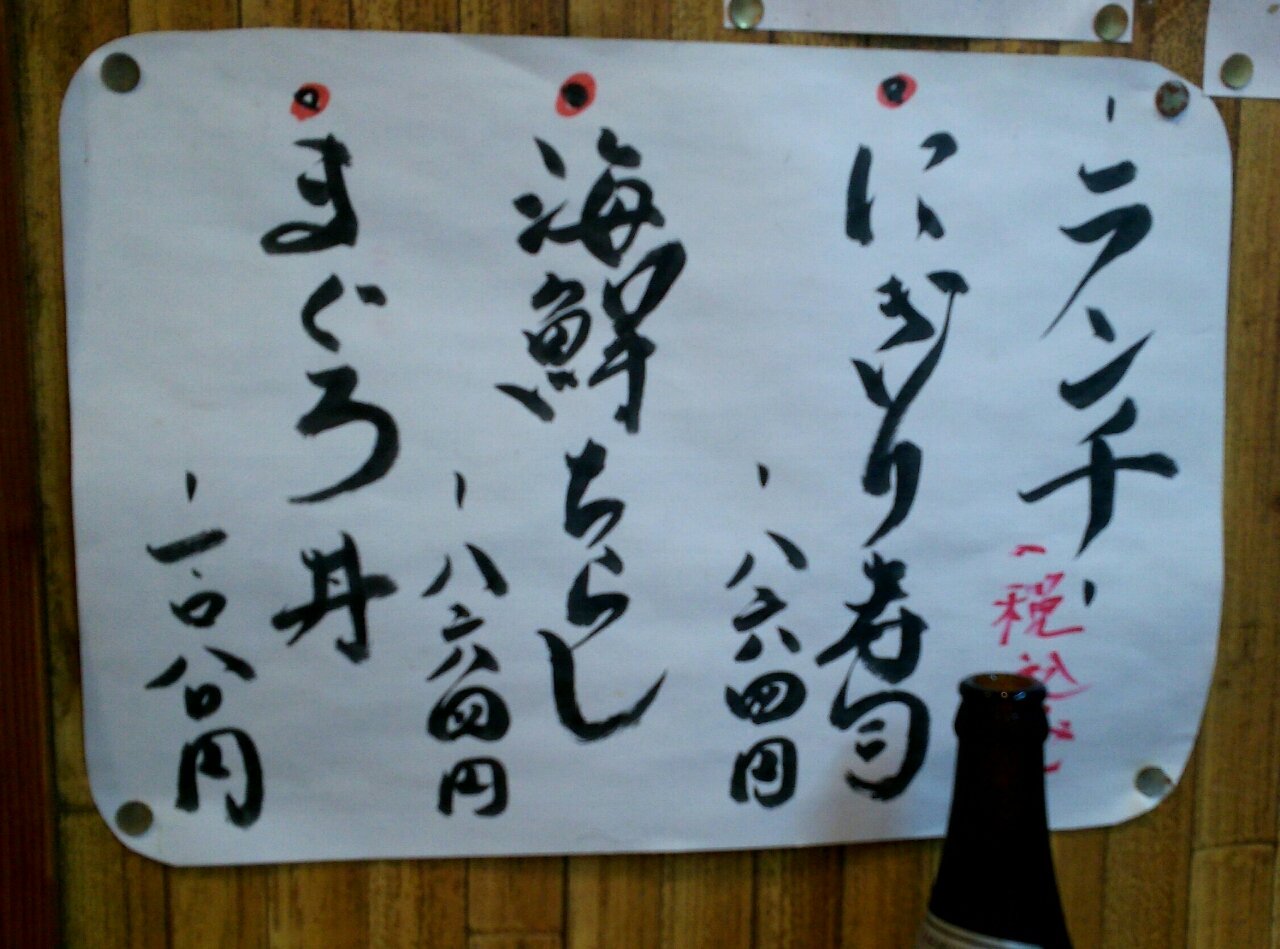 ランチ
(税込み)
にぎり寿司
八六四円
海鮮ちらし
八六四円
まぐろ丼
一〇八〇円